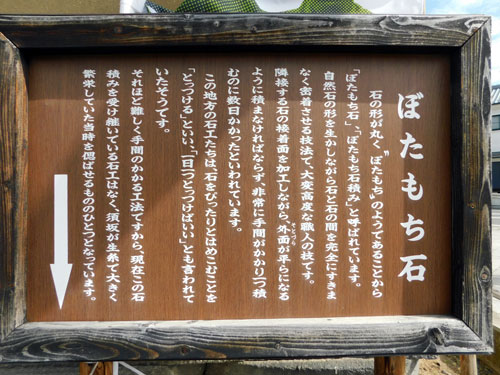 ぼたもち石
石の形が丸く〝ぼたもち〟のようであることから
「ぼたもち石」「ぼたもち石積み」と呼ばれています。
自然石の形を生かしながら石と石の間を完全にすきま
なく密着させる技法で、大変高度な職人の技です。
隣接する石の接着面を加工しながら、外面が平らになる
ように積まなければならず、非常に手間がかかり一つ積
むのに数日かかったといわれています。
この地方の石工たちは「石をぴったりとはめこむことを
「とっつける」といい、「一日一つとっつけばいい」とも言われて
いたそうです。
それほど難しく手間のかかる工法ですから、現在この石
積みを受け継いている石工はなく、須坂が生糸で大きく
繁栄していた当時を偲ばせるもののひとつとなっています。